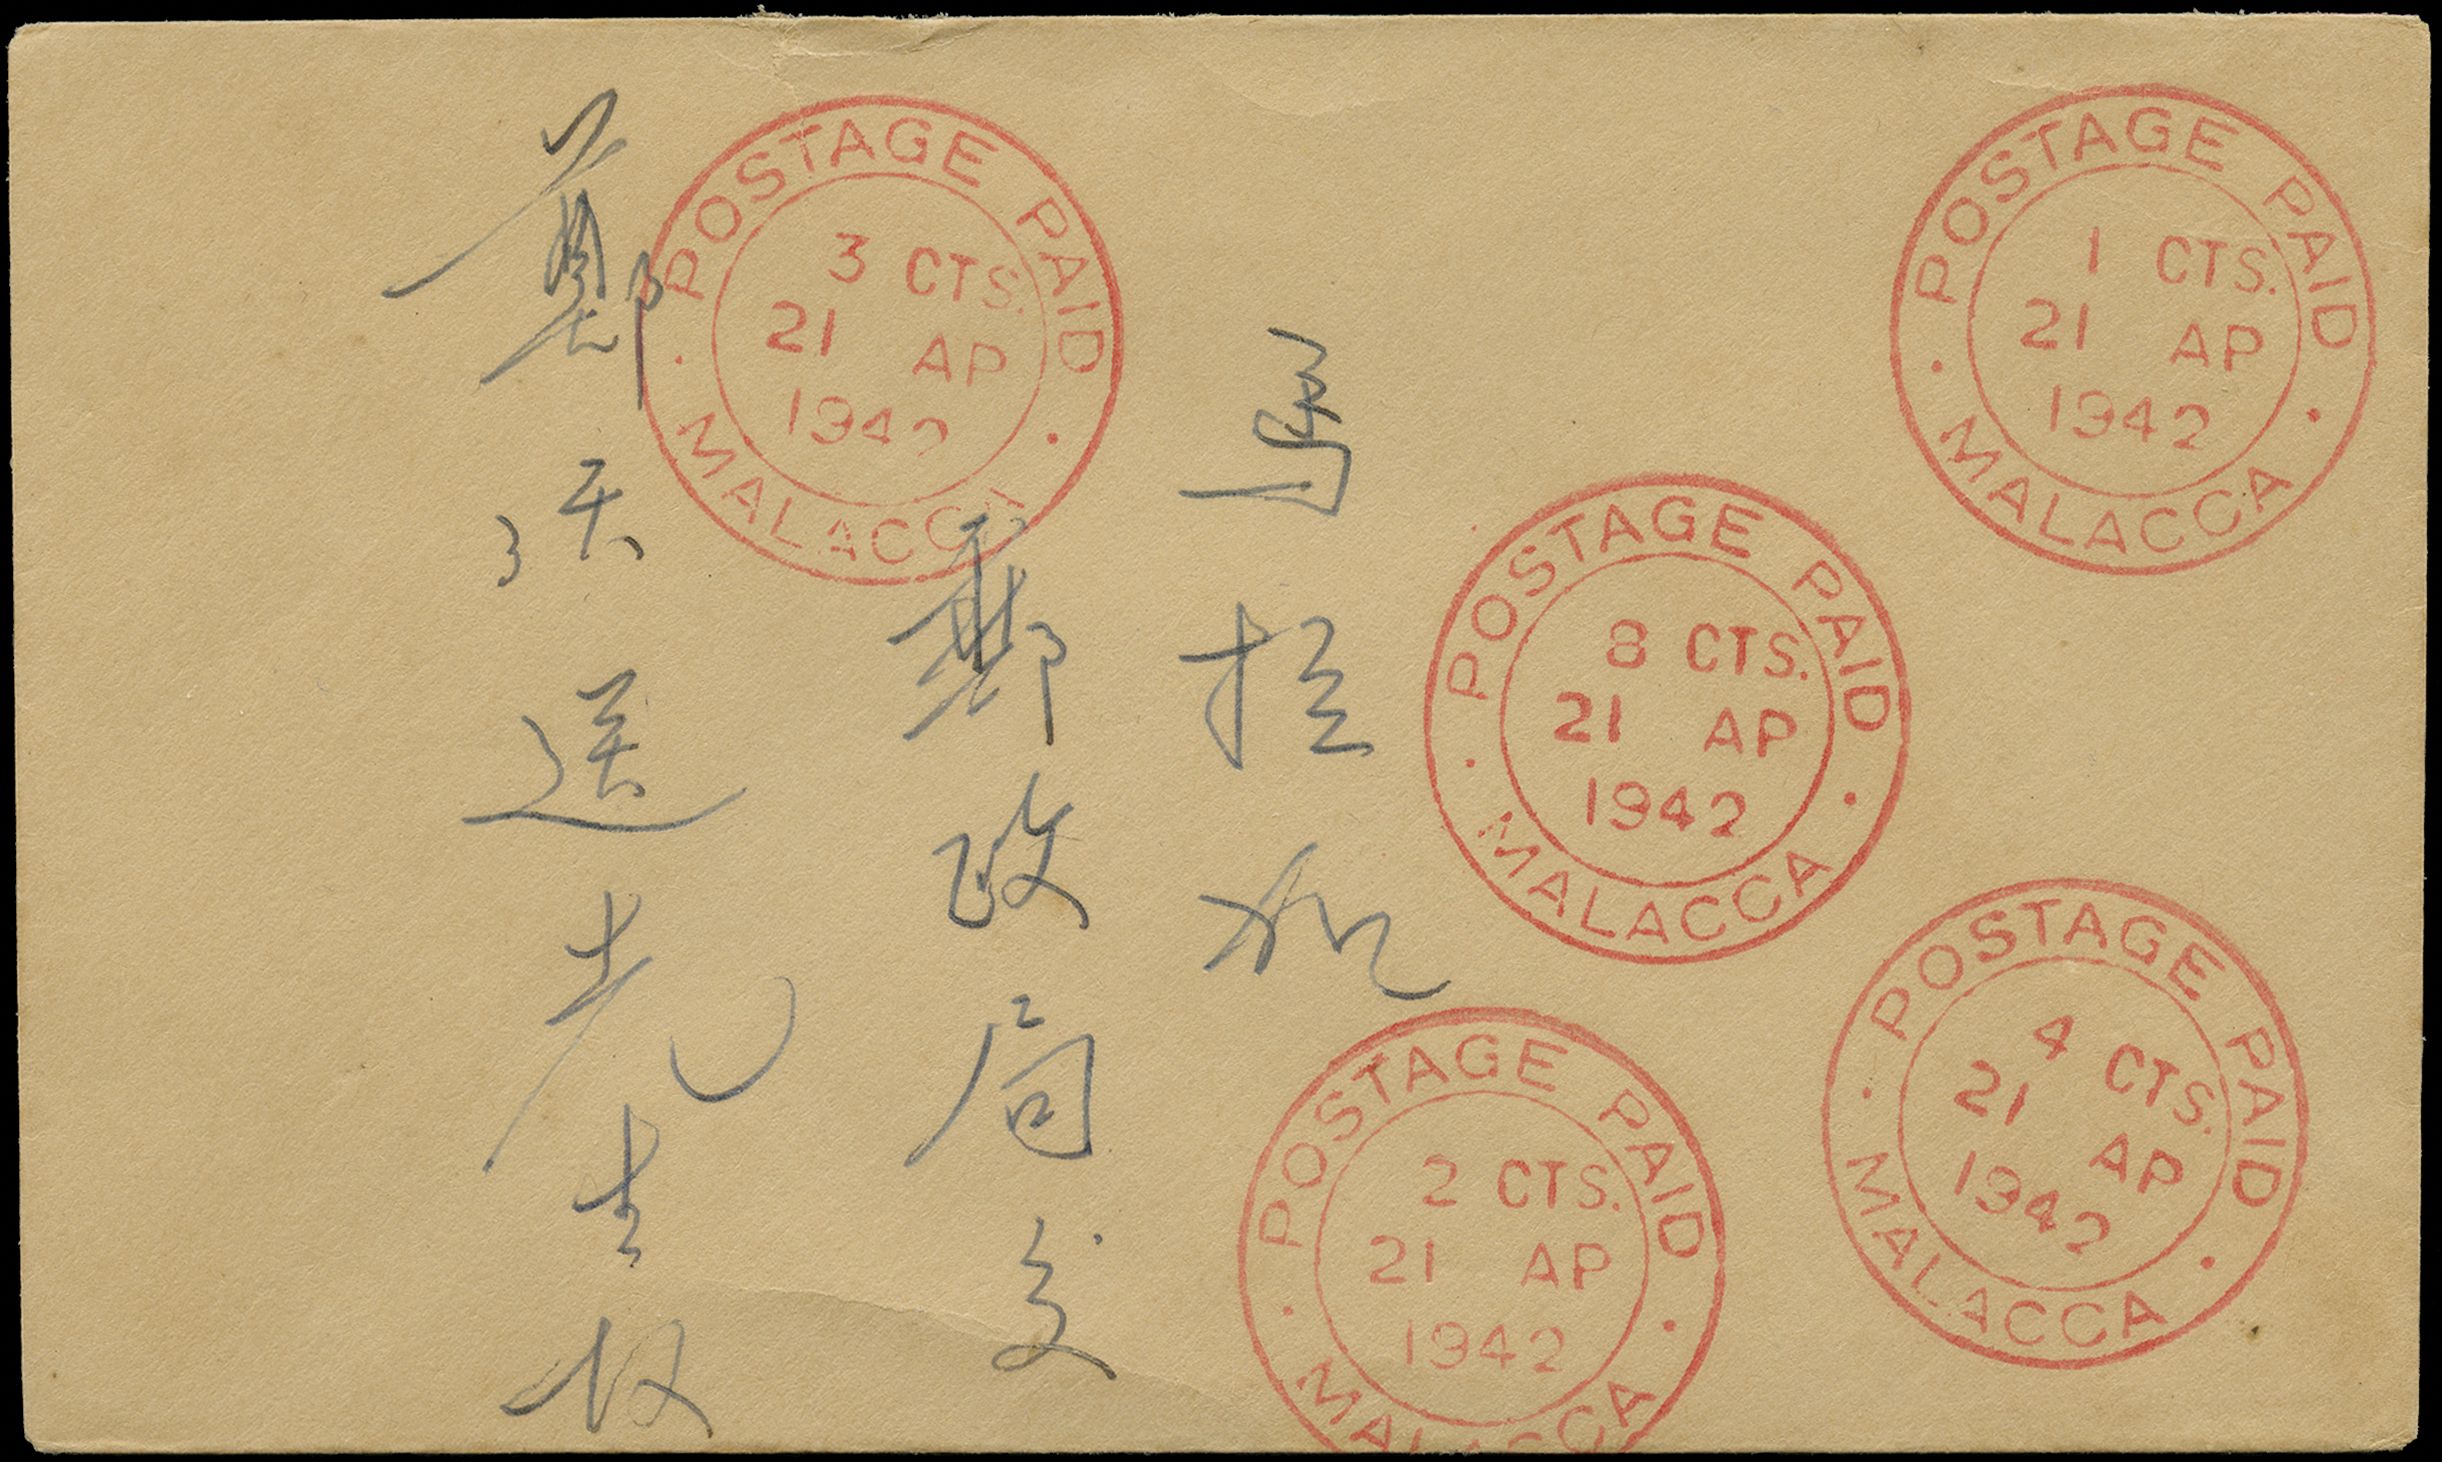 POSTAGE PAID
3 CTS.
21 AP
1942
MALACCA
POSTAGE PAID
1 CTS.
21 AP
1942
MALACCA
POSTAGE PAID
8 CTS.
21 AP
1942
MALACCA
POSTAGE PAID
4 CTS.
21 AP
1942
MALACCA
POSTAGE PAID
2 CTS.
21 AP
1942
MALACCA
馬拉加
郵政局交
鄭送先生收